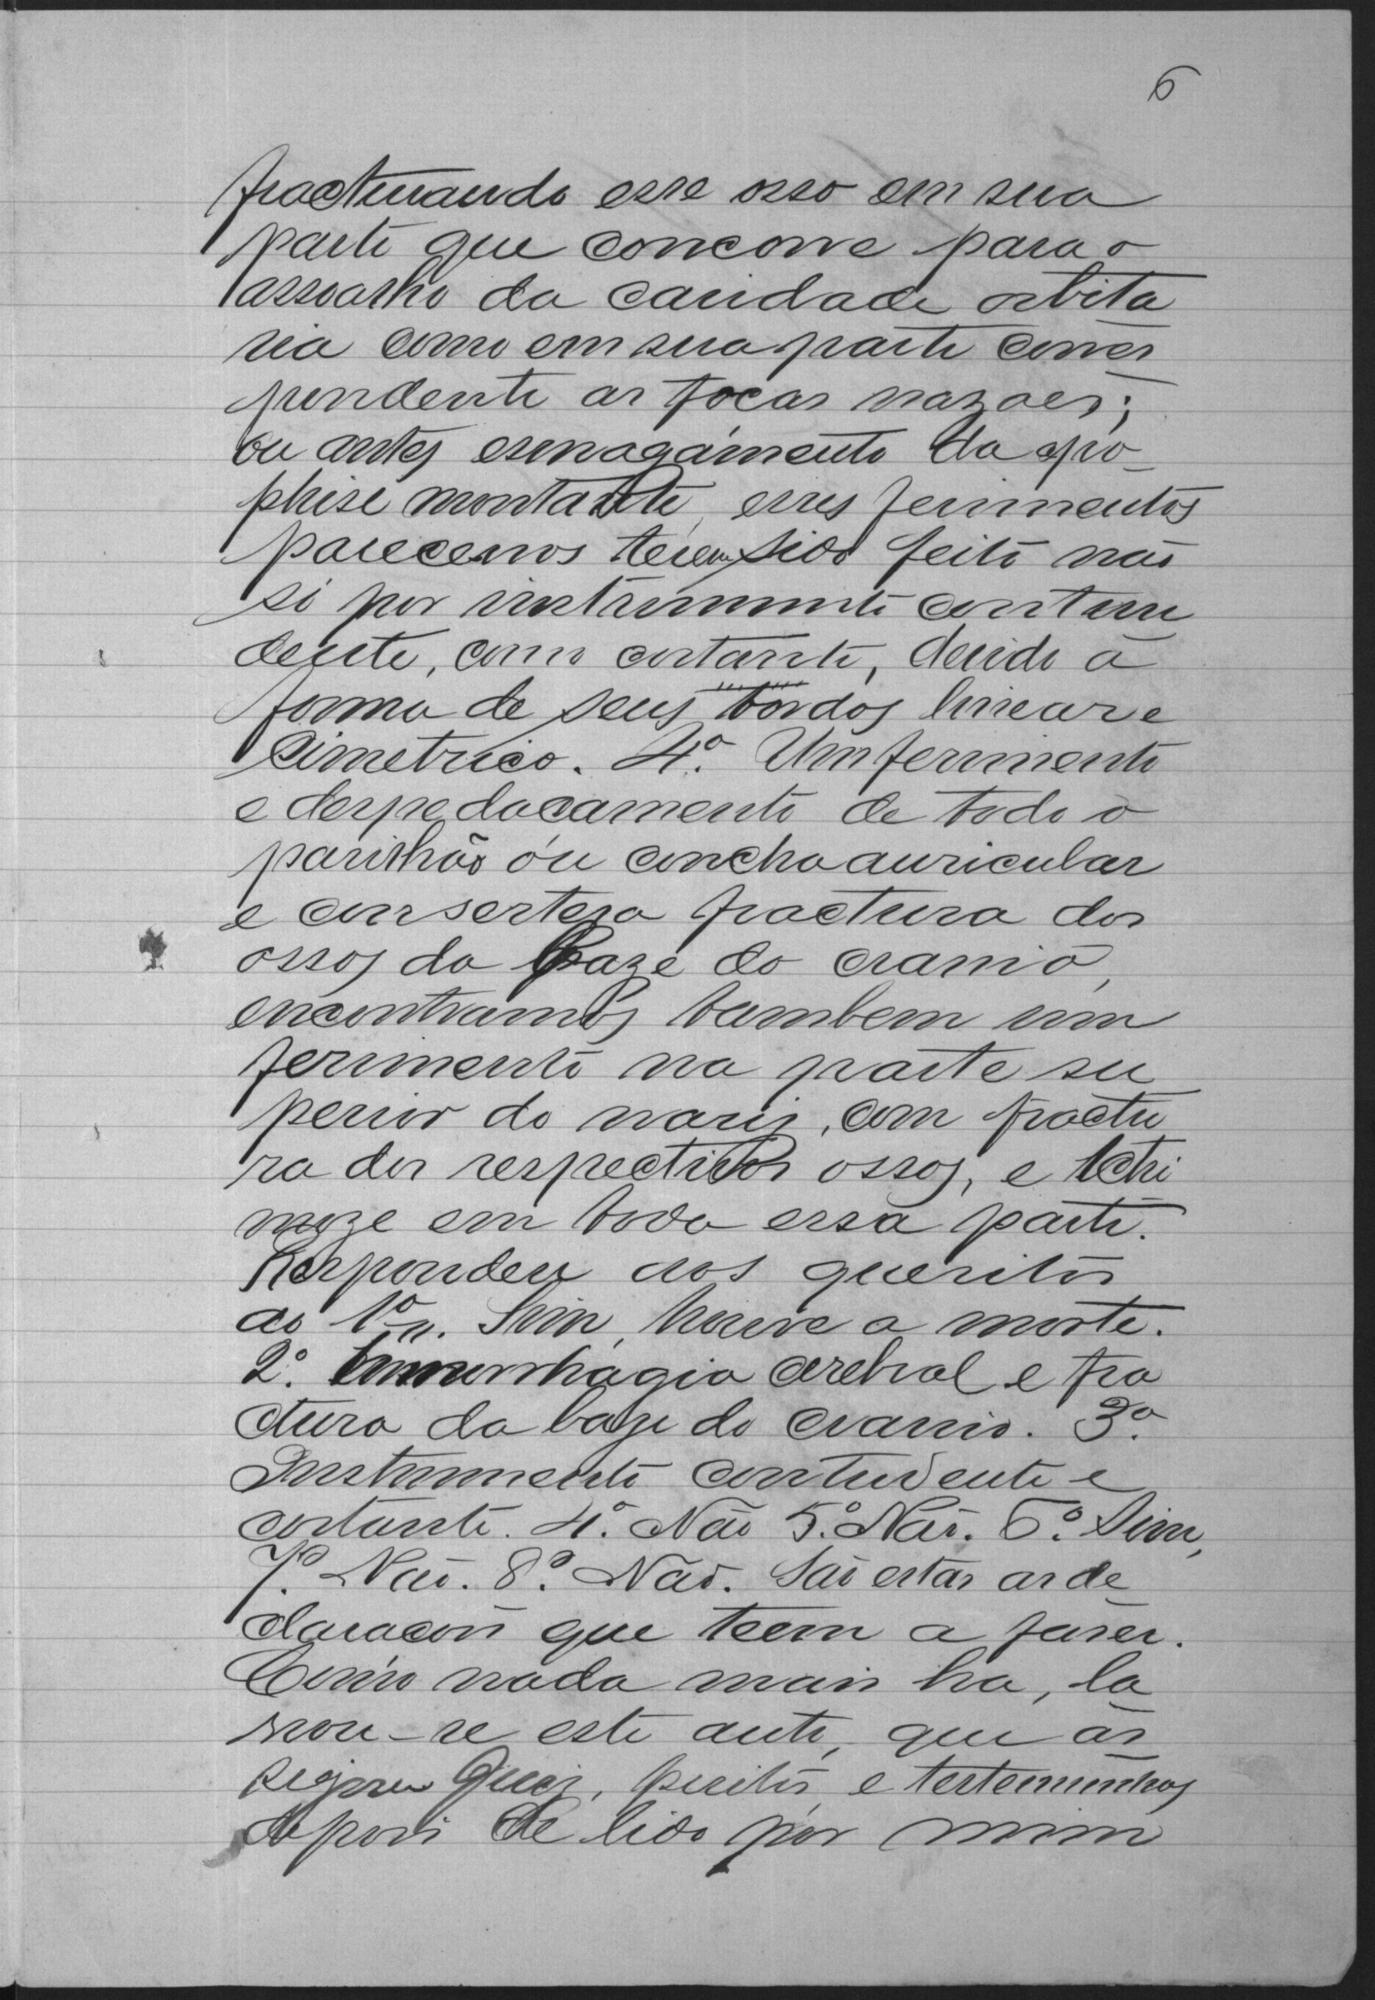 6
fracturando esse osso em sua
parte que concorre para o
assoalho da cavidade orbita
ria como em sua parte corres
pondente as focas nazaes;
ou antes esmagamento da apo-
phise montante, esses ferimentos
parecenos terem sido feito não
só por instrumento contun
dente, como cortante, devido á
forma de seus bordos linear e
simetrico. 4º. Um ferimento
e despedaçamento de todo o
pavilhão ou concha auricular
e com certesa fractura dos
ossos da baze do craneo,
encontramos tambem um
ferimento na parte su
perior do nariz, com fractu
ra dos respectivos ossos, e echi
moze em toda essa parte.
Respondeu aos quesitos
ao 1º. Sim, houve a morte.
2º. hemorrhagia cerebral e fra
ctura da baze do craneo. 3º.
Instrumento contudente e
cortante. 4º. Não 5º. Não. 6º. Sim,
7º. Não. 8º. Não. São estas as de
claracões que teem a faser.
Como nada mais ha, la
vrou-se este auto, que as
signa Juiz, peritos, e testemunhas
depois de lido por mim